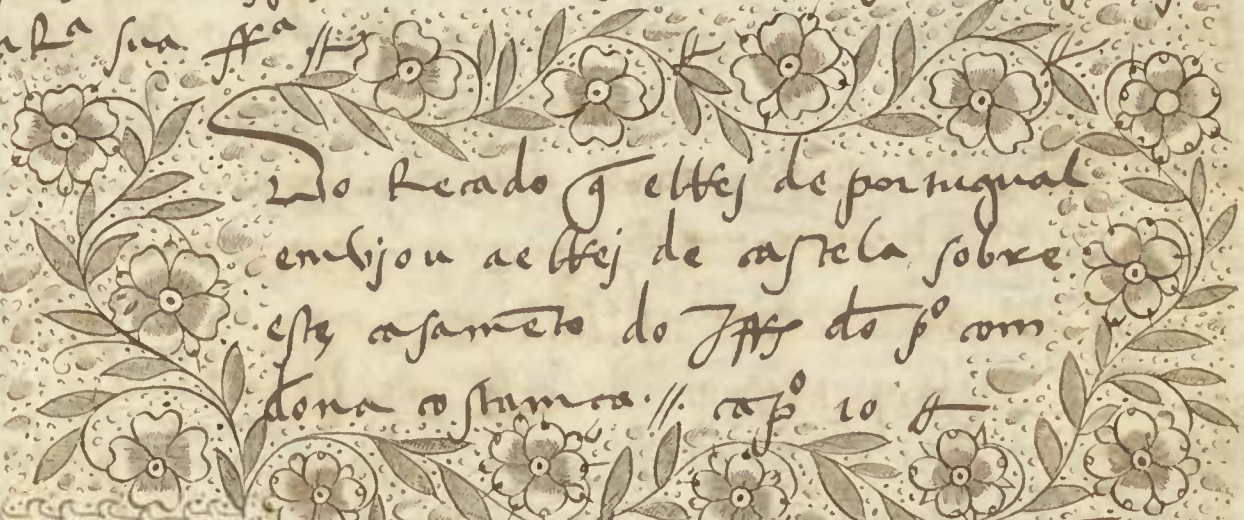 aRa sua ff.ª //
Do Recado q̃ elRej de portugual
emvjou ae lRej de castela sobre
este casamẽto do Jffe dõ p.º com
dona costamça // cap.º 10